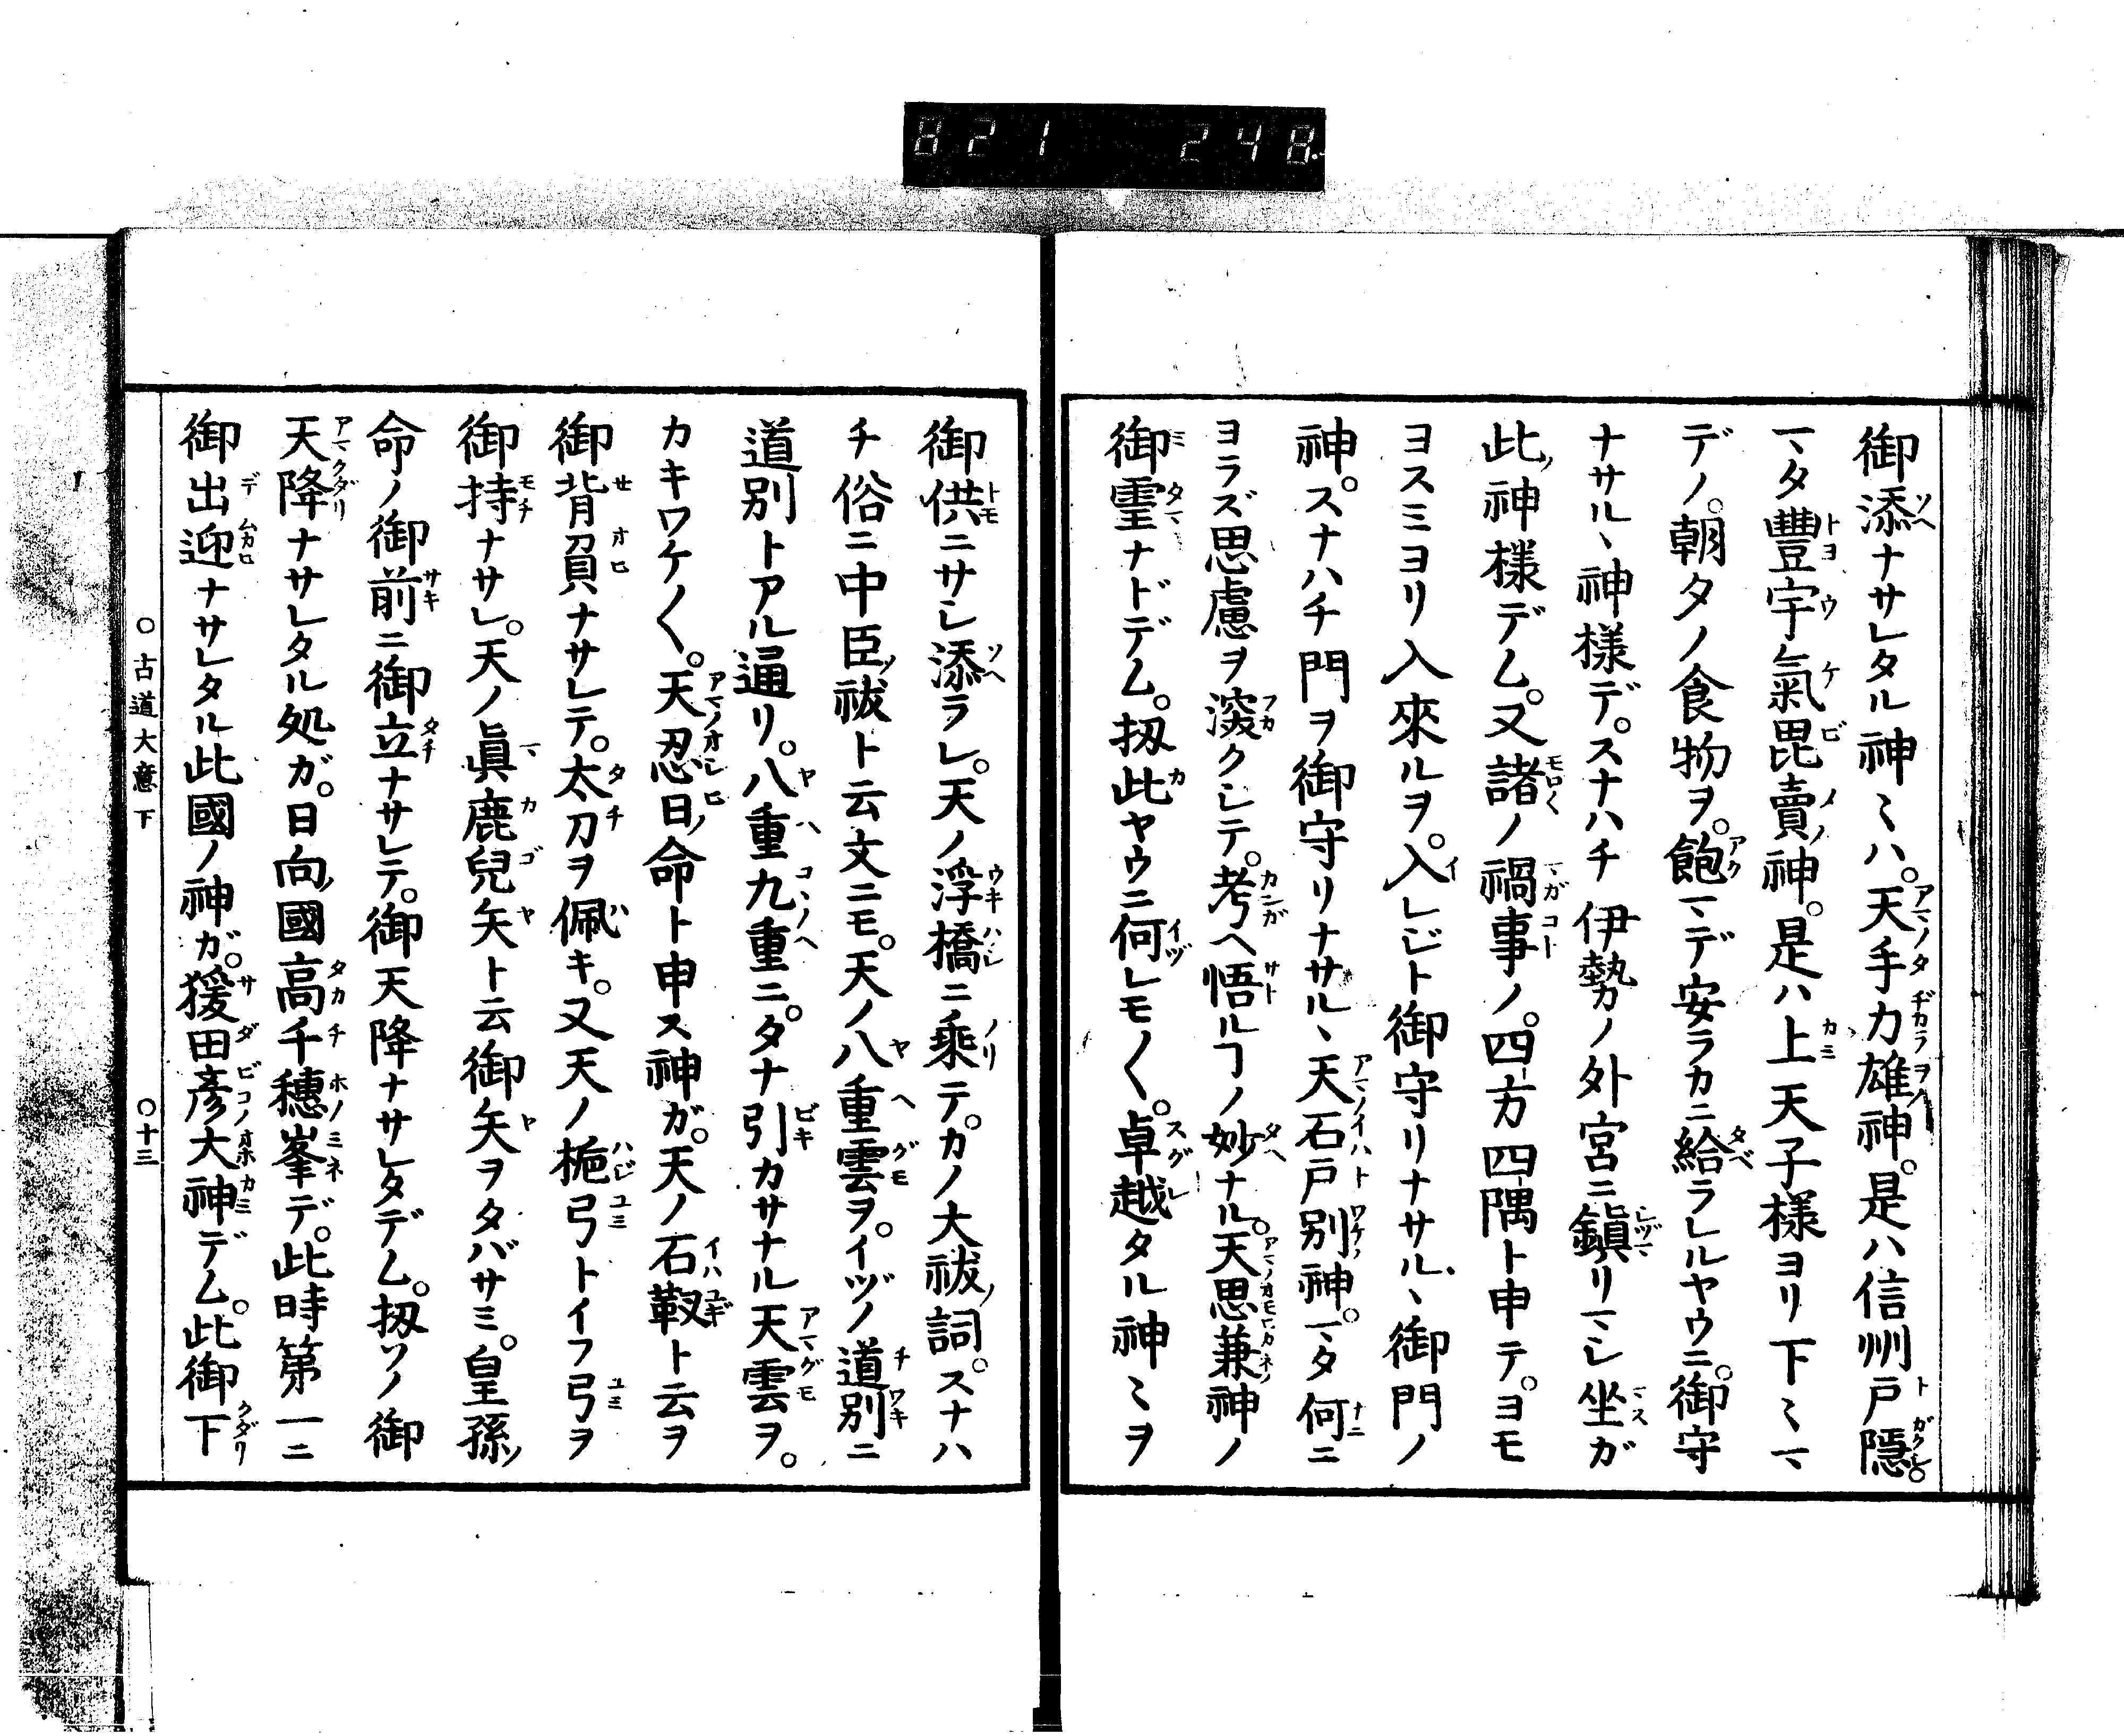 821 248
御添ナサレタル神〻ハ。天手力雄神。是ハ信州戸隱。
マタ豐宇氣毘賣神。是ハ上天子樣ヨリ下〻マ
デノ。朝タノ食物ヲ。飽マデ安ラカニ給ラレルヤウニ。御守
ナサルヽ神樣デ。スナハチ伊勢ノ外宮ニ鎭リマシ坐ガ
此神樣デム。又諸ノ禍事ノ。四方四隅ト申テ。ヨモ
ヨスミヨリ入來ルヲ。入レジト御守リナサルヽ御門ノ
神。スナハチ門ヲ御守リナサルヽ天石戸別神。マタ何ニ
ヨラズ思慮ヲ深クシテ。考ヘ悟ルヿノ妙ナル。天思兼神ノ
御霊ナドデム。扨此ヤウニ何レモ〱。卓越タル神〻ヲ
御供ニサレ添ラレ。天ノ浮橋ニ乘テ。カノ大祓詞。スナハ
チ俗ニ中臣祓ト云文ニモ。天ノ八重雲ヲ。イヅノ道別ニ
道別トアル通リ。八重九重ニ。タナ引カサナル天雲ヲ。
カキワケ〱。天忍日命ト申ス神ガ。天ノ石靫ト云ヲ
御背負ナサレテ。太刀ヲ佩キ。又天ノ梔弓トイフ弓ヲ
御持ナサレ。天ノ眞鹿兒矢ト云御矢ヲタバサミ。皇孫
命ノ御前ニ御立ナサレテ。御天降ナサレタデム。扨ソノ御
天降ナサレタル処ガ。日向國高千穗峯デ。此時第一ニ
御出迎ナサレタル此國ノ神ガ。猨田彦大神デム。此御下
○古道大意下 ○十三